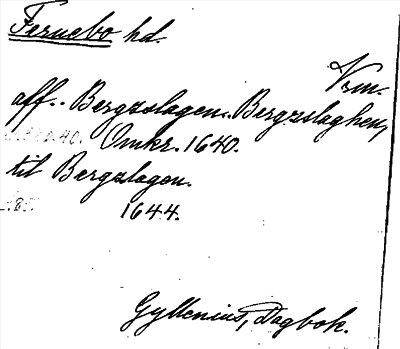 Fernebo hd.
Vrm.
aff.. Bergzslagen. Bergzslaghen,
Omkr. 1640.
til Bergslagen.
1644.
Gyllenius, Dagbok.